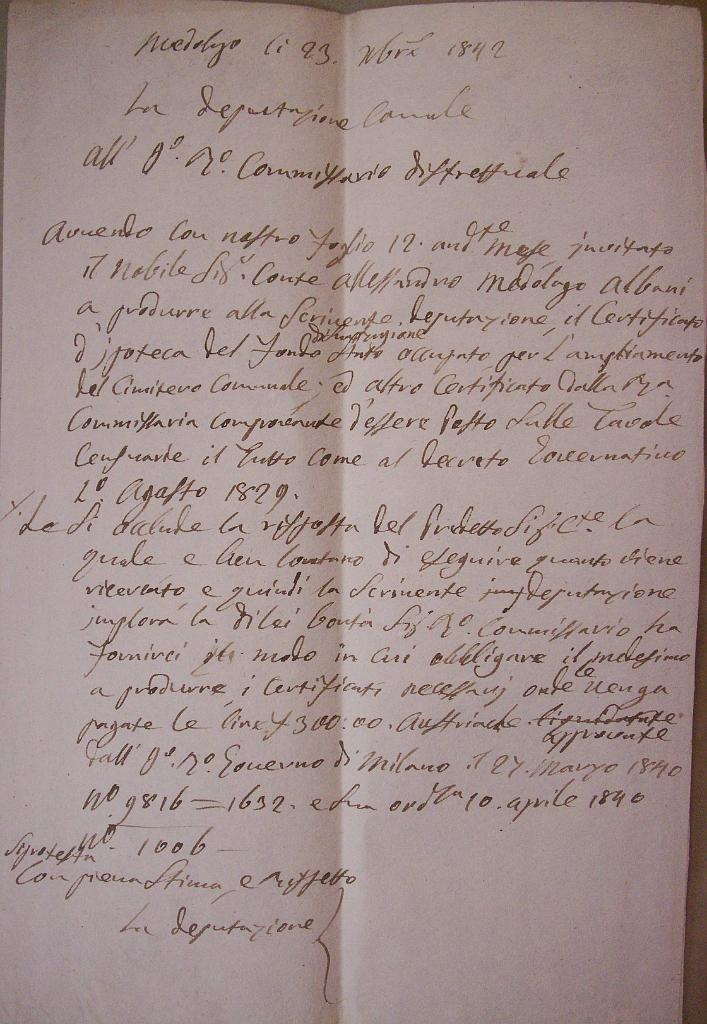 Medolago li 23. Xbre 1842
La deputazione Comunale
All' I.° R.° Commissario distrettuale
Avendo con nostro foglio 12. andte mese invitato
il Nobile Sigr. Conte Allessandro Medolago Albani
a produrre alla Scrivente deputazione, il Certificato
d'ipoteca del fondo Stato occupato per l'ampliamento
del Cimitero Comunale; ed altro Certificato dalla
Commissaria comprovante d'essere Posto Sulle Tavole
Censuarie il tutto come al decreto Governativo
1.° Agosto 1829.
Le Si acclude la risposta del Predetto Sigr. Cte la
quale e ben lontano di eseguire quanto viene
ricercato e quindi la Scrivente deputazione
implora la di lei bontà Sigr R.° Commissario ha
fornirci modo in cui obbligare il medesimo
a produrre i Certificati necessarj onde le venga
pagate le lire £ 300:00. Austriache approvate
dall' I.° R.° Governo di Milano il 27. Marzo 1840
N° 9816=1632. e Sua ordza 10. aprile 1840
N° 1006
Si protesta
Con piena Stima, e Rispetto
La deputazione